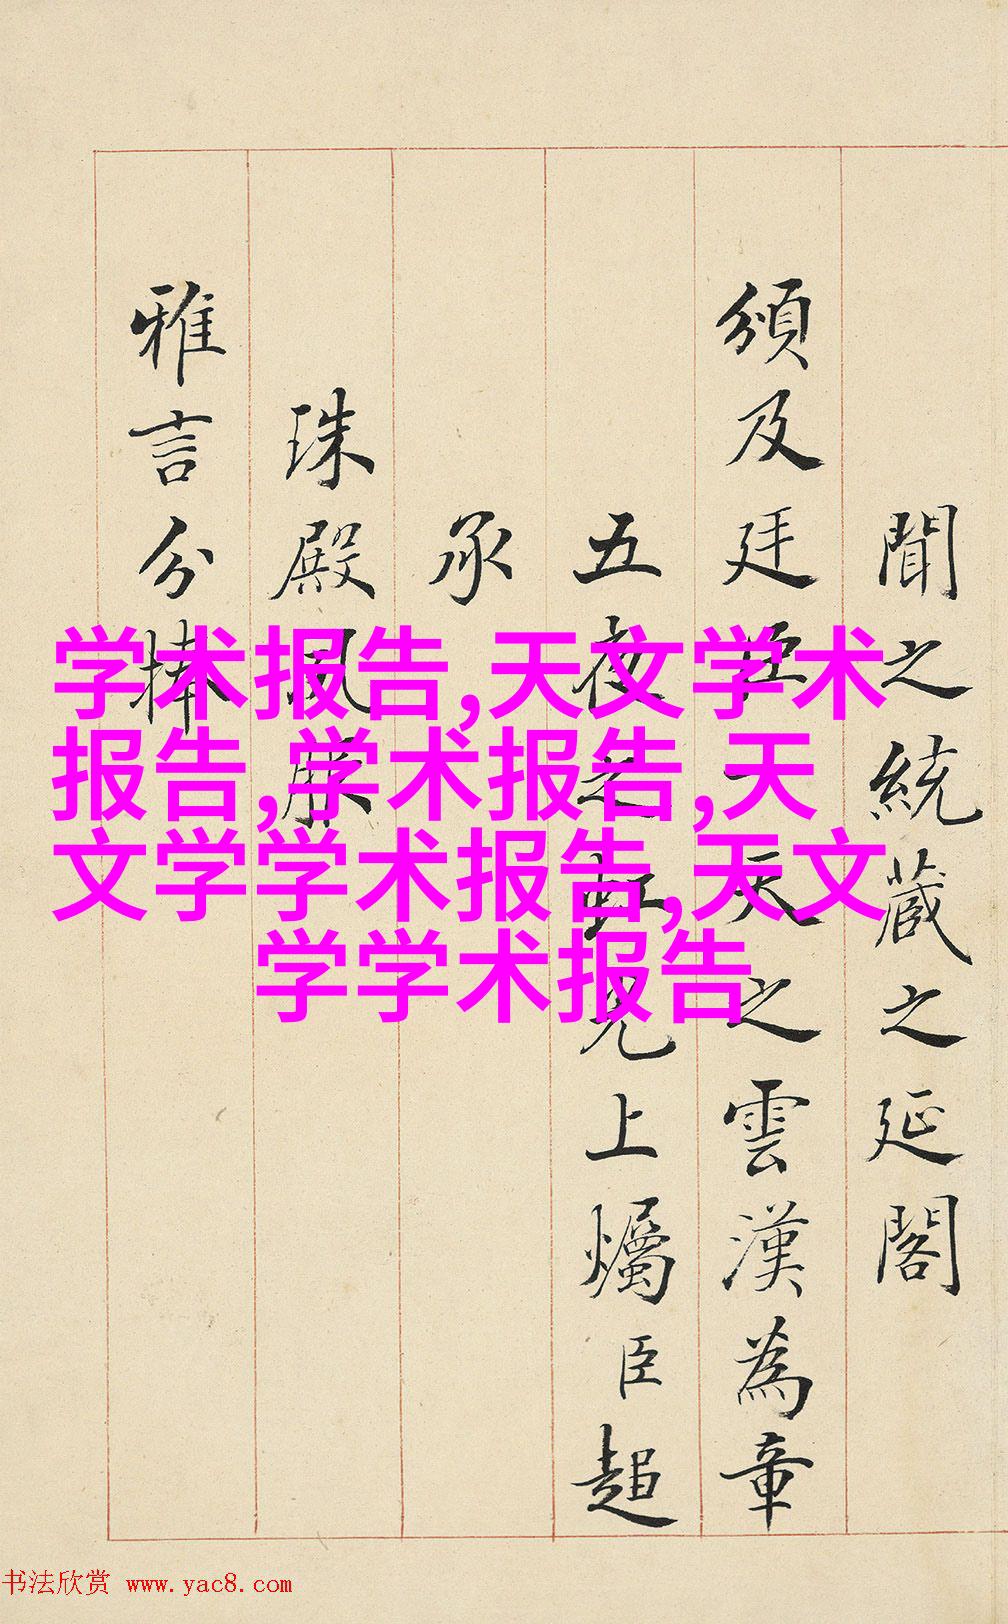 聞之統藏之延閣
頒及廷臣一天之雲漢為章
五夜之虹光上爥臣超
承
珠殿
雅言分捧
学术报告,天文学术
报告,学术报告,天
文学学术报告,天文
学学术报告
书法欣赏 www.yac8.com